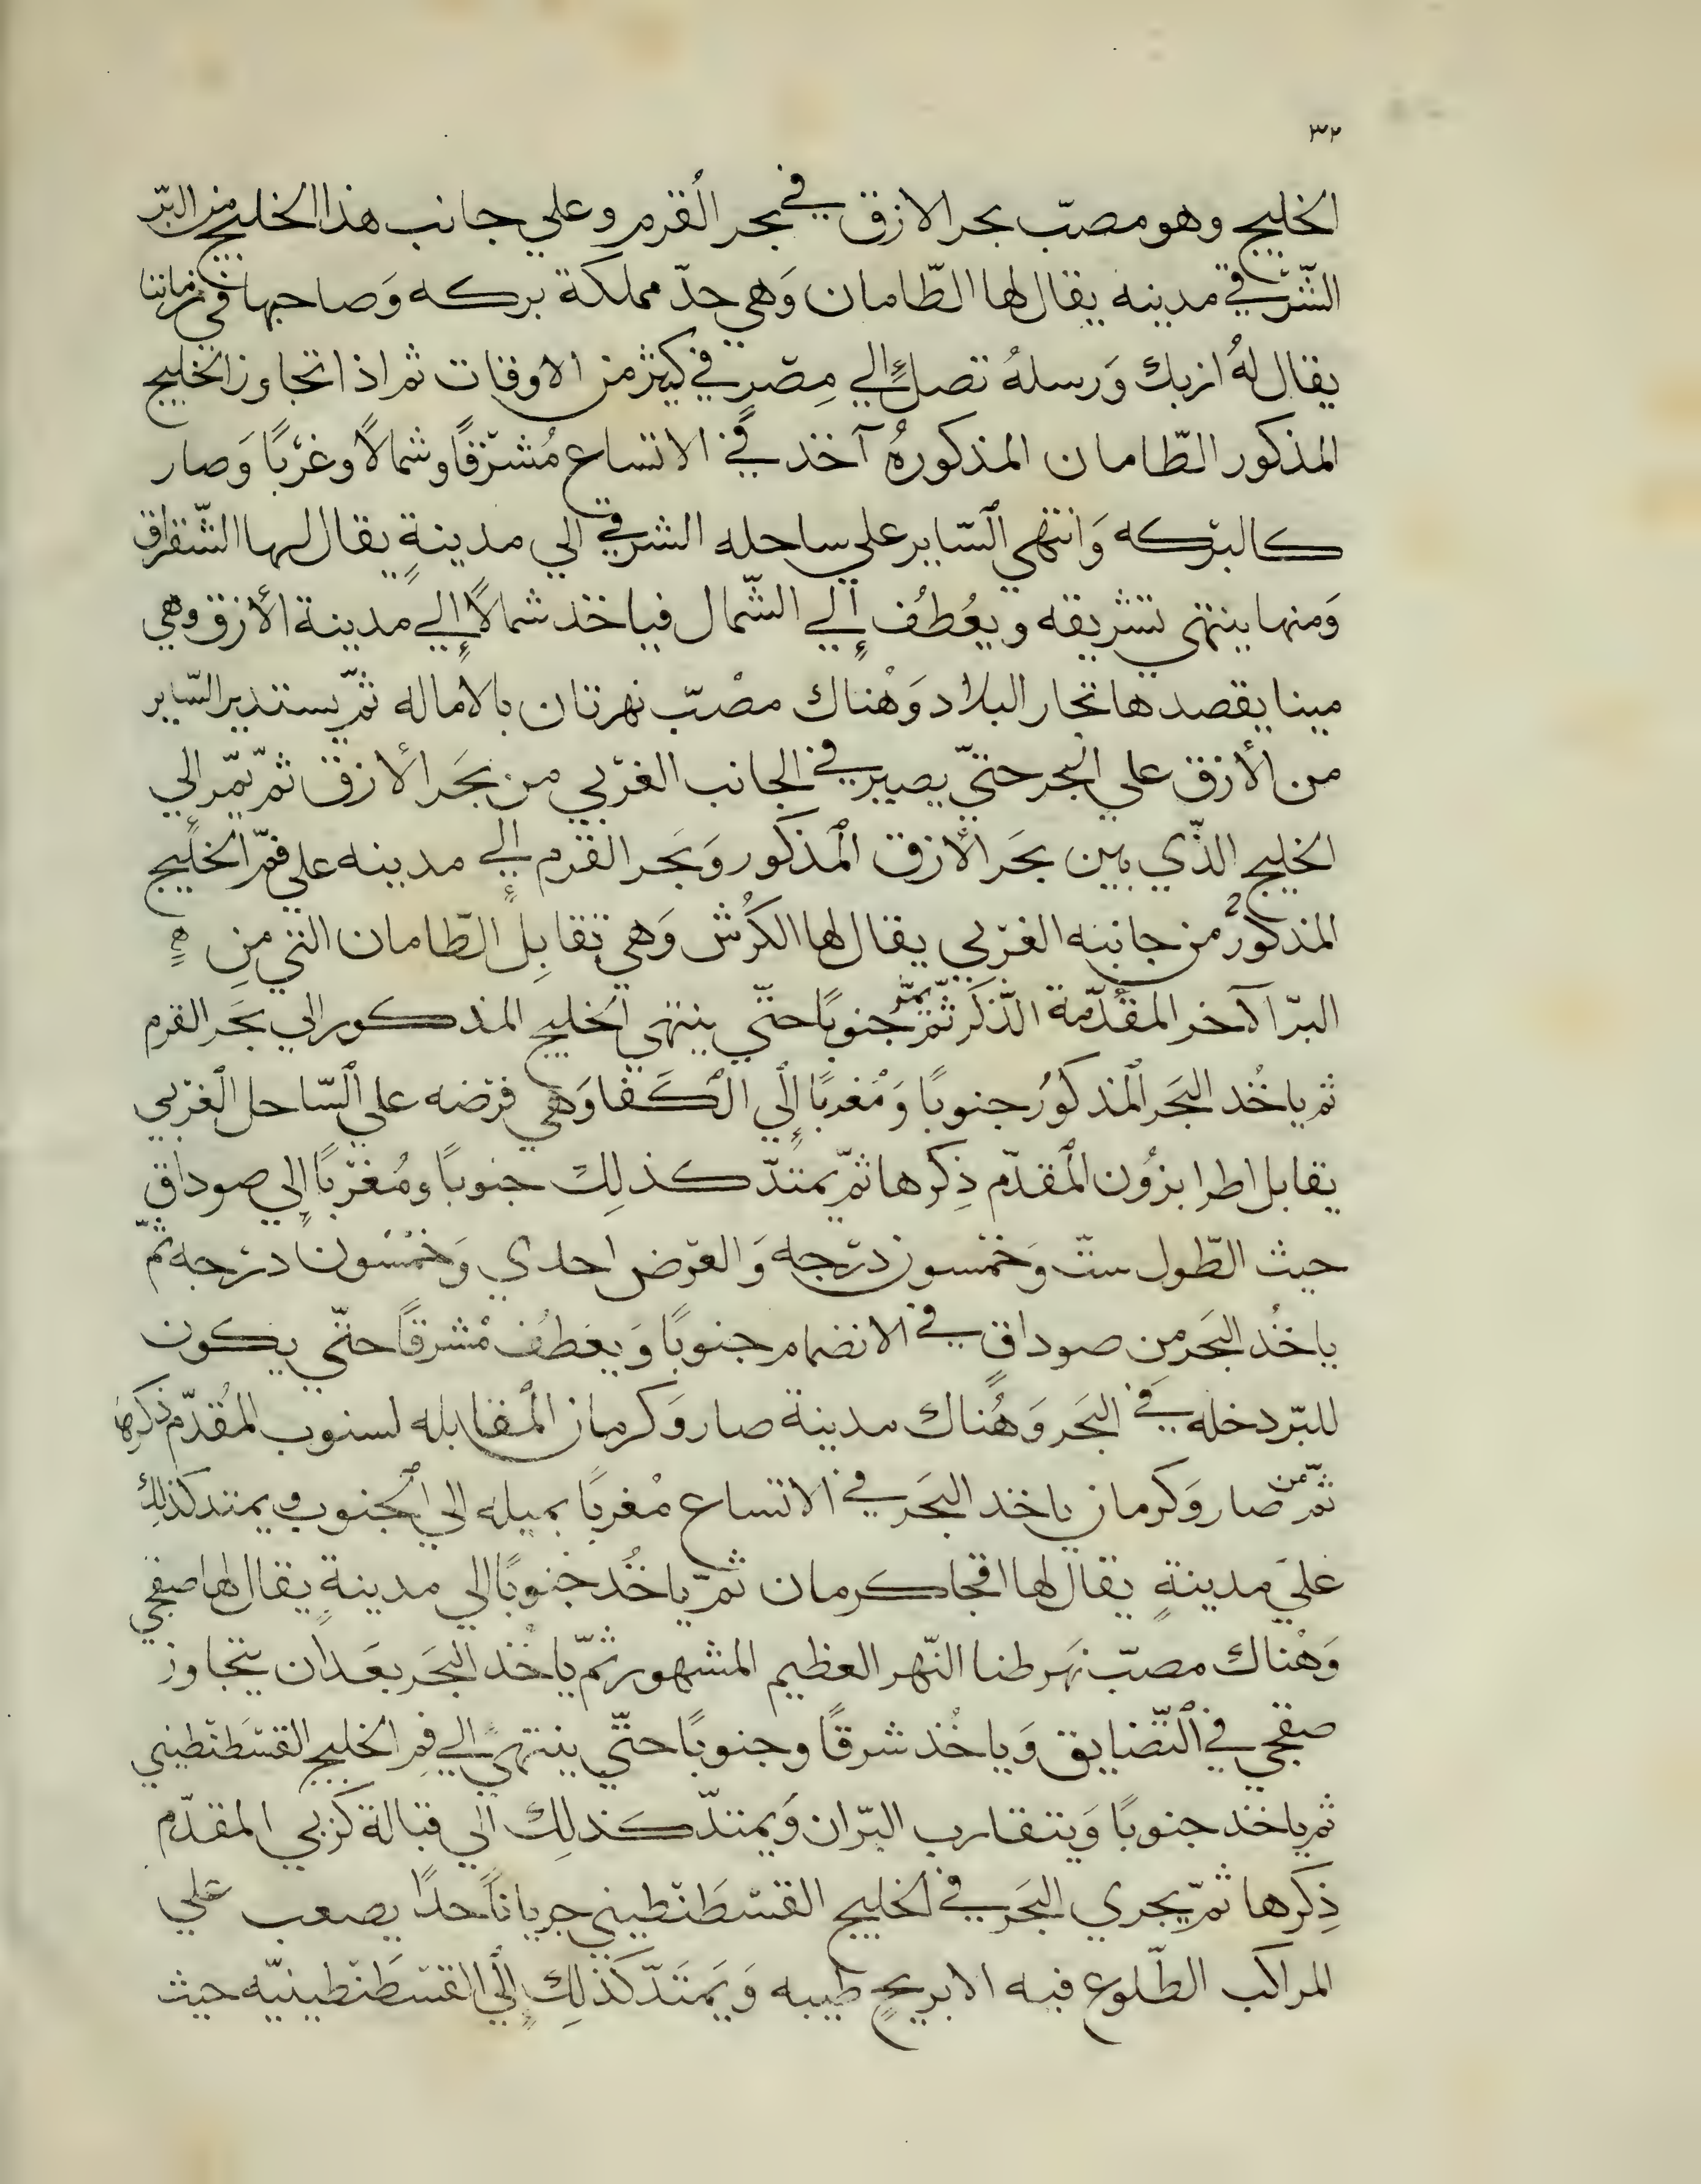 ٣٢
الخليج وهو مصبّ بحر الازق في بحر القرم وعلي جانب هذا الخليج من البرّ
الشّرقي مدينه يقال لها الطّامان وَهي حدّ مملكة بركه وَصاحبها في زماننا
يقال لهُ ازبك وَرسلهُ تصل إلي مِصْر في كثير من الاوقات ثم اذا تجاوز الخليج
المذكور الطّامان المذكورهُ آخذ في الاتساع مُشرّقًا وشمالًا وغرْبًا وَصار
كالبرْكه وَانتهي السّاير علي ساحله الشرقي الي مدينةٍ يقال لها الشّقراق
وَمنها ينتهي تشْريقه ويعُطُف إلي الشّمال فياخذ شمالًا إلي مدينة الأزق وهي
مينا يقصدها تجار البلاد وَهْناك مصْبّ نهر تان بالاماله ثمّ يستدير السّاير
من الأزق علي البحر حتيّ يصير في الجانب الغرْبي من بحَر الأزق ثمّ يمّر الي
الخليج الذّي بين بحَر الأزق المْذكور وَبحَر القرم إلي مدينه علي فمّ الخليج
المذكورُ من جانبه الغرْبي يقال لها الكرُش وَهي تقابِل الطّامان التي مِن
البرّ الآخر المقدّمة الذّكر ثمّ يمّر جنوبًا حتّي ينتهي الخليج المذكور الي بحَر القرم
ثم ياخُذ البحَر المْذكورُ جنوبًا وَمْغربًا إلي الكَفا وَهي فرْضه علي السّاحل الغرْبي
يقابل اطرابزوُن المْقدّم ذِكرها ثمّ يمتدّ كذلِك جنوبًا ومُغرّبًا إلي صوداق
حيث الطّول ستّ وَخمْسون درْجه وَالعرْض احدي وَخمْسْون درْجه ثمّ
ياخُذ البحَر مِن صوداقٍ في الانضمام جنوبًا وَيعَطُف مْشرقًا حتّي يكون
للبّر دخله في البحَر وَهُناك مدينة صاروَكرمان المْقابله لسنوب المُقدّم ذكرها
ثمّ من صاروَكرمان ياخذ البحَر في الاتساع مْغربًا بميله الي الجْنوب ويمتد كذلِك
عَليَ مدينةٍ يقال لها اقجاكرمان ثمّ ياخُذ جْنوبًا الي مدينةٍ يقال لها صقجي
وَهْناك مصبّ نهَر طنا النّهر العظيم المشهور ثمّ ياخُذ البحَر بعَد ان يتجاوز
صقجي في التّضايق وَياخُذ شرقًا وجنوبًا حتّي ينتهيَ إلي فمِ الخليج القسْطَنْطيني
ثم ياخذ جنوبًا وَيتقارب البرّان وَيمتدّ كذلِك الي قبالة كزبي المقدّم
ذِكرها ثمّ يجري البحَر في الخليج القسْطَنْطيني جريانًا حدًا يصعب علي
المراكب الطّلوع فيه الا بريحٍ طيبه وَيمَتَدّ كَذلِك إلي القسْطَنْطينيّه حيث